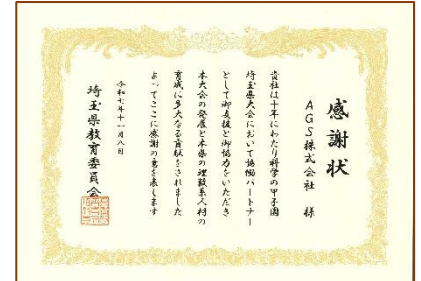 感謝状
AGS株式会社 様
貴社は十年にわたり科学の甲子園
埼玉県大会において協働パートナー
として御支援と御協力をいただき
本大会の発展と本県の理数系人材の
育成に多大なる貢献をされました
よってここに感謝の意を表します
令和七年十一月八日
埼玉県教育委員会